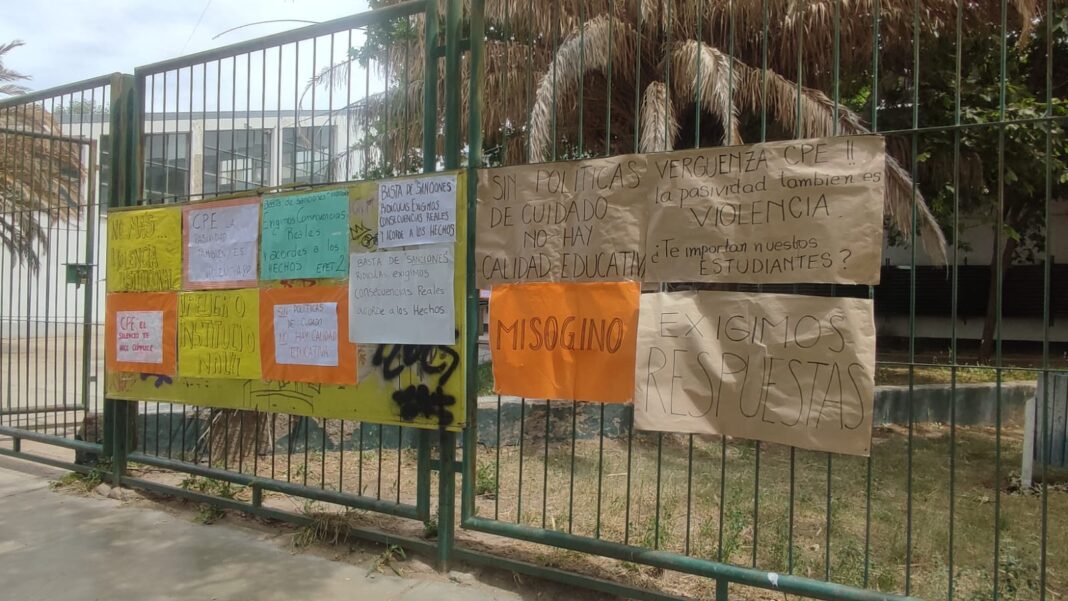 NO MAS
VIOLENCIA
INSTITUCIONAL
CPE LA
PASIVIDAD
TAMBIEN ES
VIOLENCIA
BASTA DE SANCIONES
Exigimos CONSECUENCIAS
Reales
Y acordes A los
HECHOS EPET 2
BASTA DE SANCIONES
RIDICULAS EXIGIMOS
CONSECUENCIAS REALES
Y ACORDE A LOS HECHOS
BASTA DE SANCIONES
RIDICULAS, EXIGIMOS
CONSECUENCIAS Reales
acorde A los HECHOS
CPE EL
SILENCIO TE
HACE COMPLICE
SIN POLITICAS
DE CUIDADO
NO HAY CALIDAD
EDUCATIVA
SIN POLITICAS
DE CUIDADO
NO HAY
CALIDAD EDUCATIVA
VERGUENZA CPE !!
la pasividad tambien es
VIOLENCIA.
¿Te importan nuestros
ESTUDIANTES?
MISOGINO
EXIGIMOS
RESPUESTAS